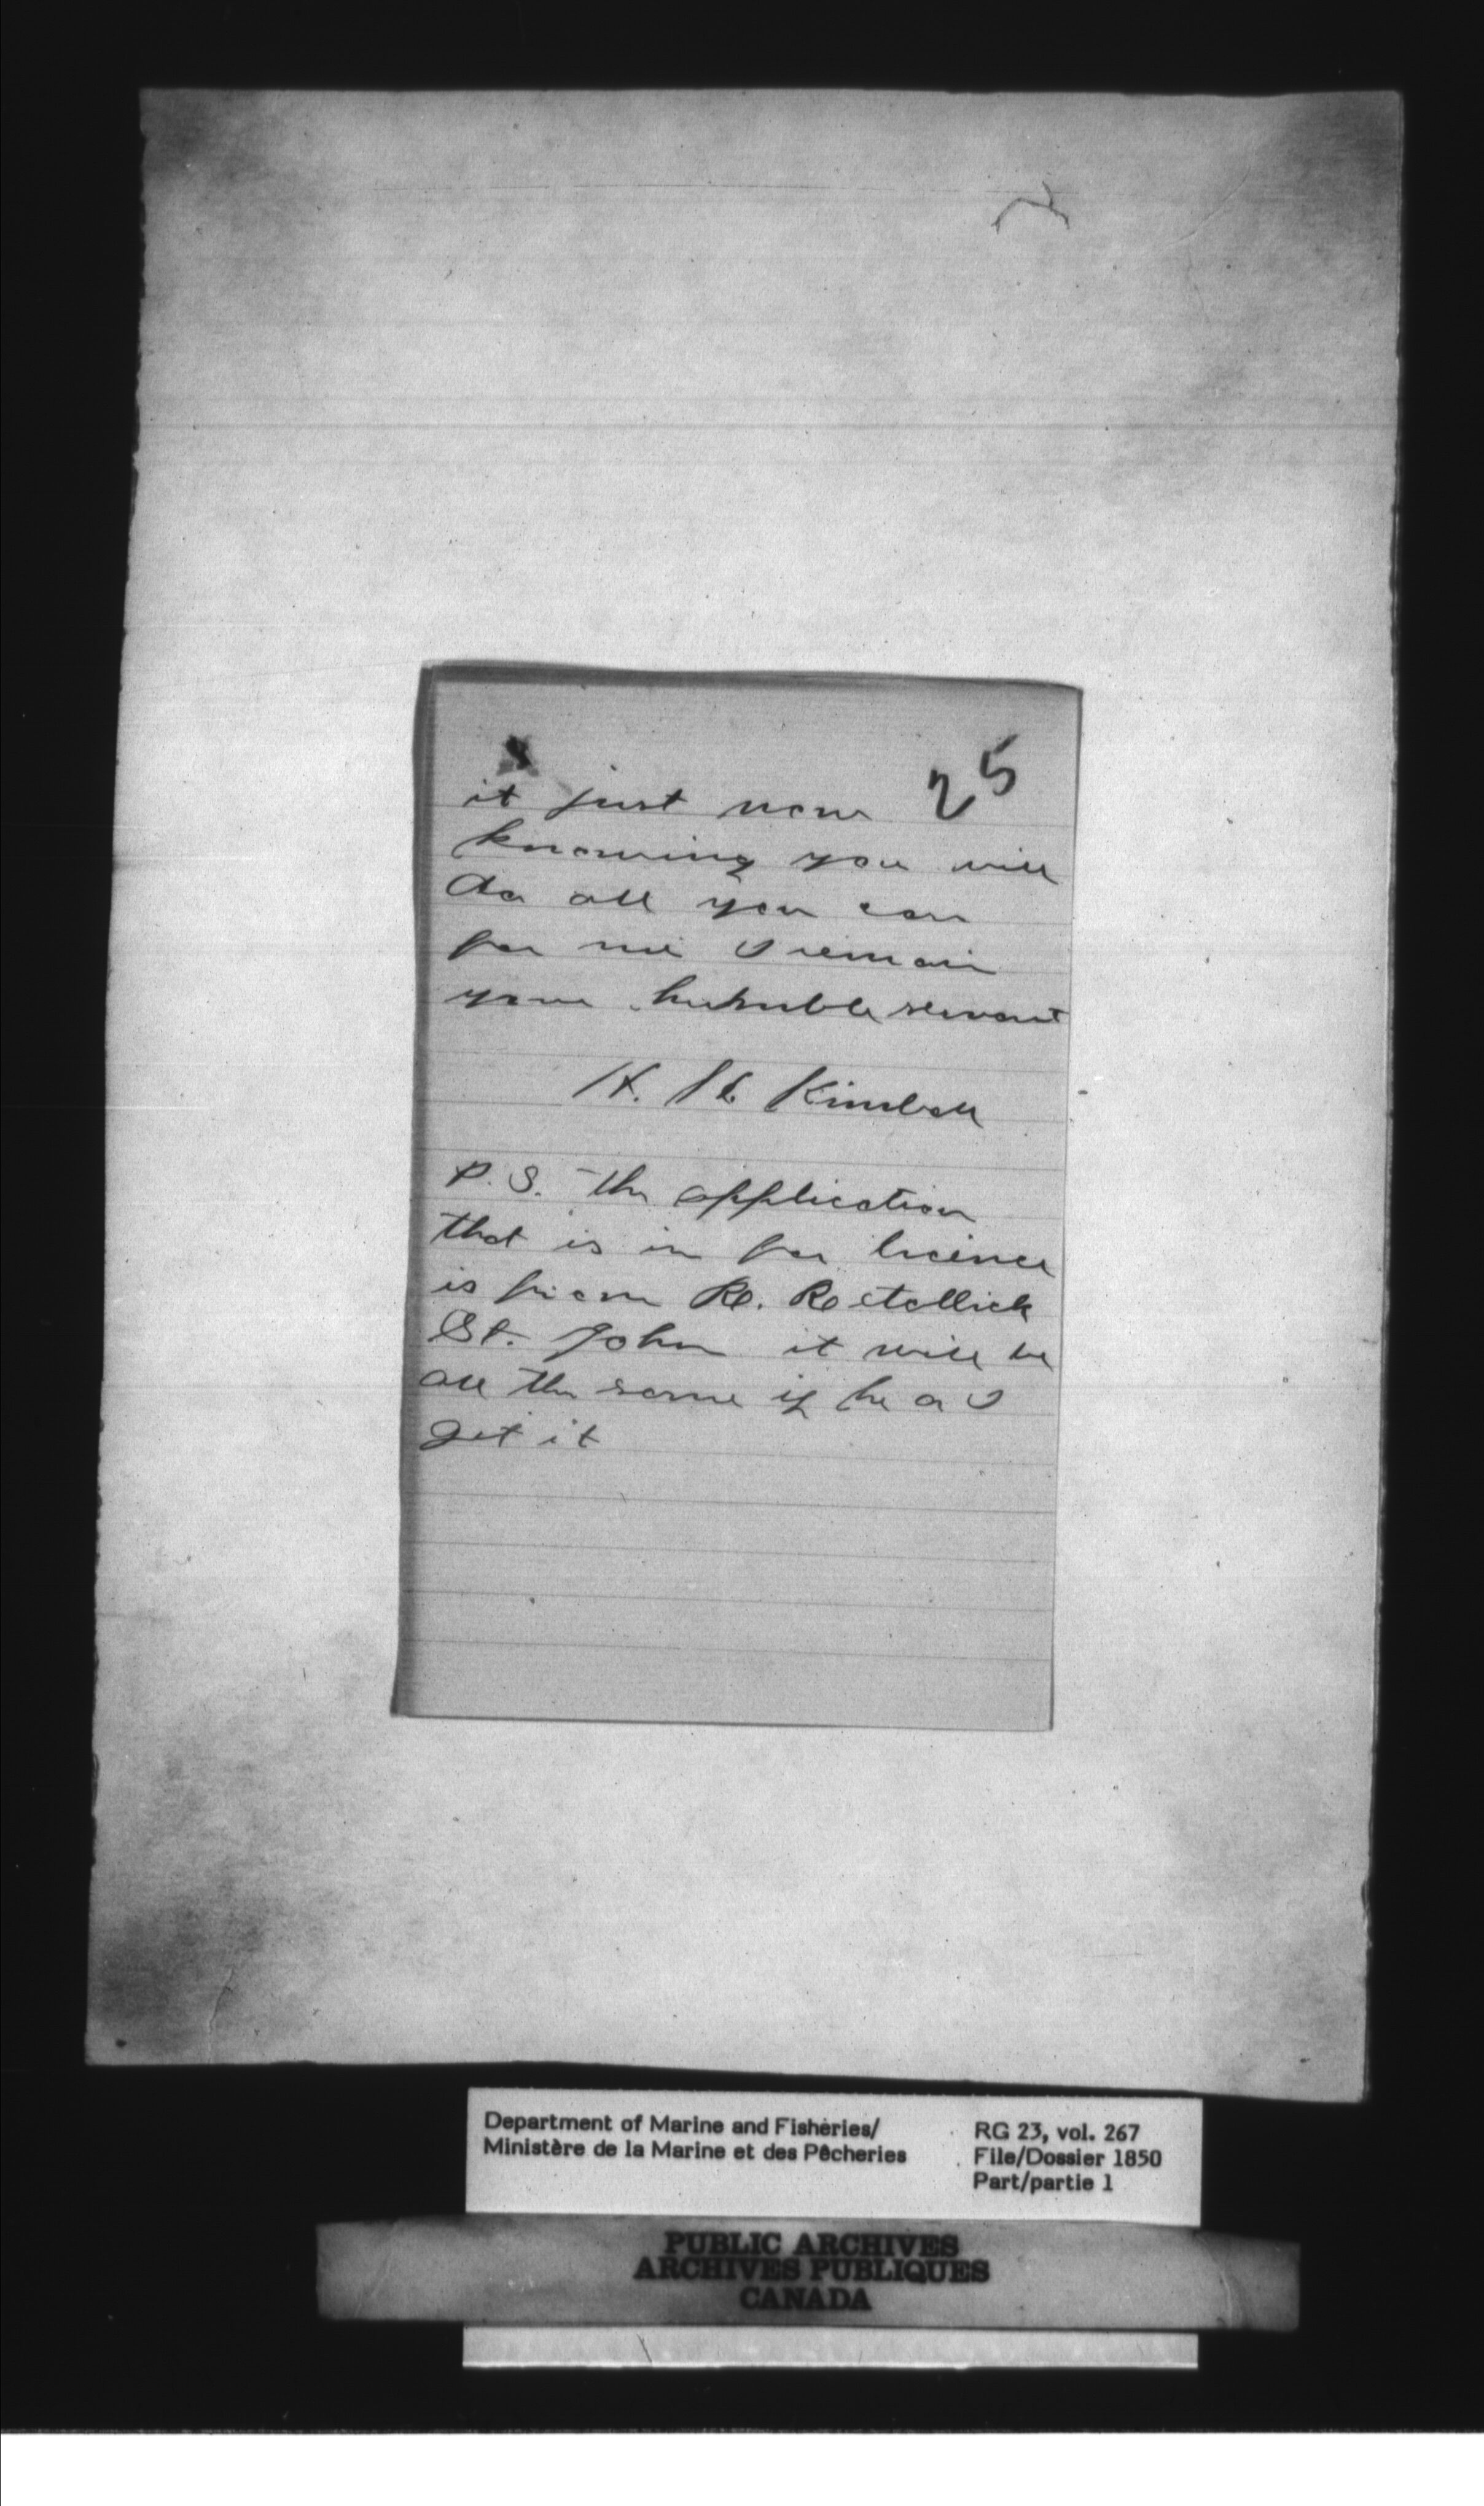 25
it just now
knowing you will
do all you can
for me I remain
your humble servant
H. H. Kimball
P.S. The application
that is in for licence
is from R. Retallick
St. John it will be
all the same if he a I
get it
Department of Marine and Fisheries/
Ministère de la Marine et des Pêcheries
RG 23, vol. 267
File/Dossier 1850
Part/partie 1
PUBLIC ARCHIVES
ARCHIVES PUBLIQUES
CANADA